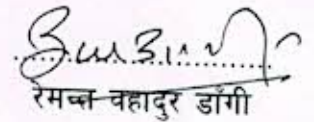 रेमन्त वहादुर डाँगी